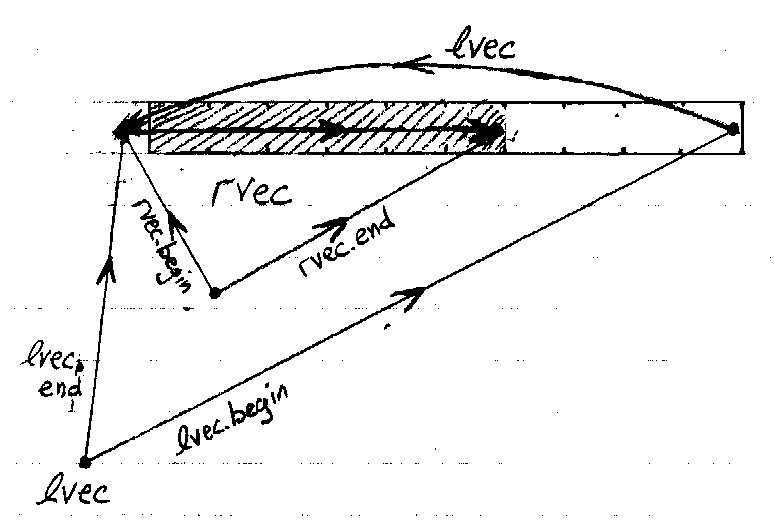 lvec
rvec
rvec.begin
rvec.end
lvec.
end
lvec.begin
lvec